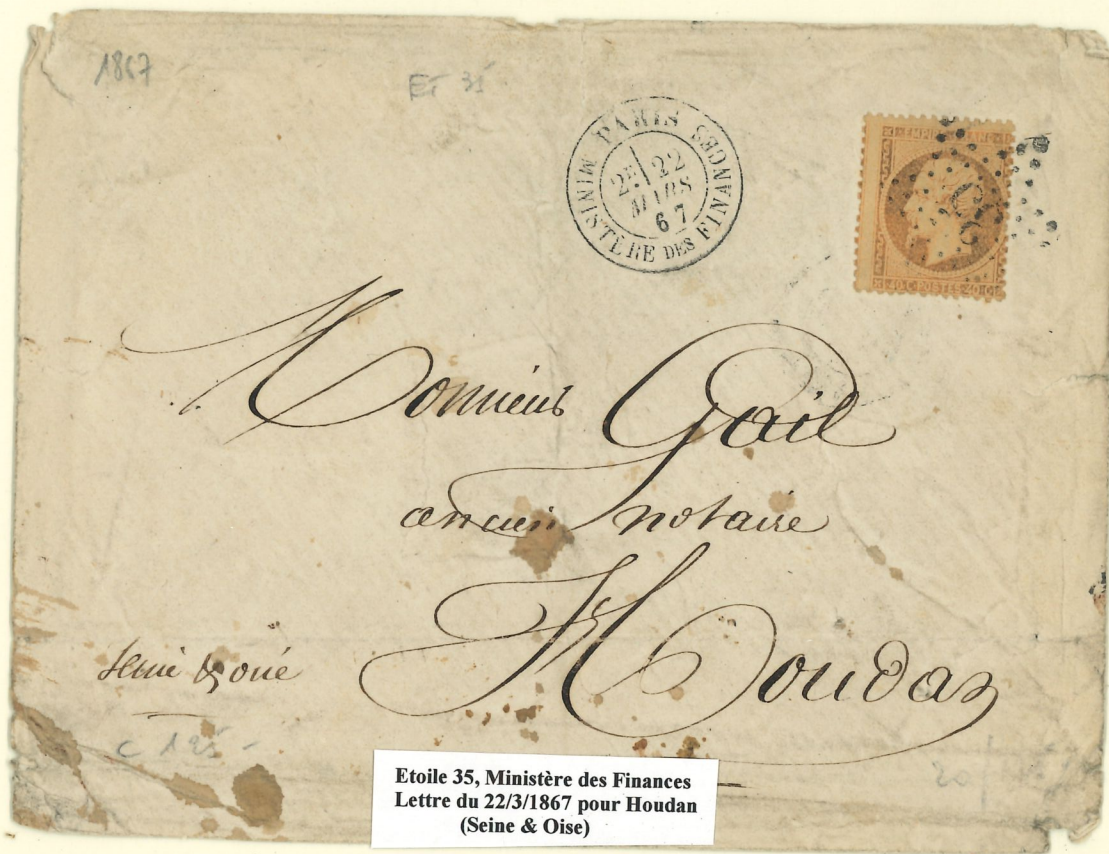 1867
ET 35
PARIS
MINISTÈRE DES FINANCES
2E 22
MARS
67
EMPIRE FRANC
35
40 C POSTES 40 C
Monsieur Gail
ancien notaire
Houdan
Seine & Oise
C 125 -
20
Etoile 35, Ministère des Finances
Lettre du 22/3/1867 pour Houdan
(Seine & Oise)